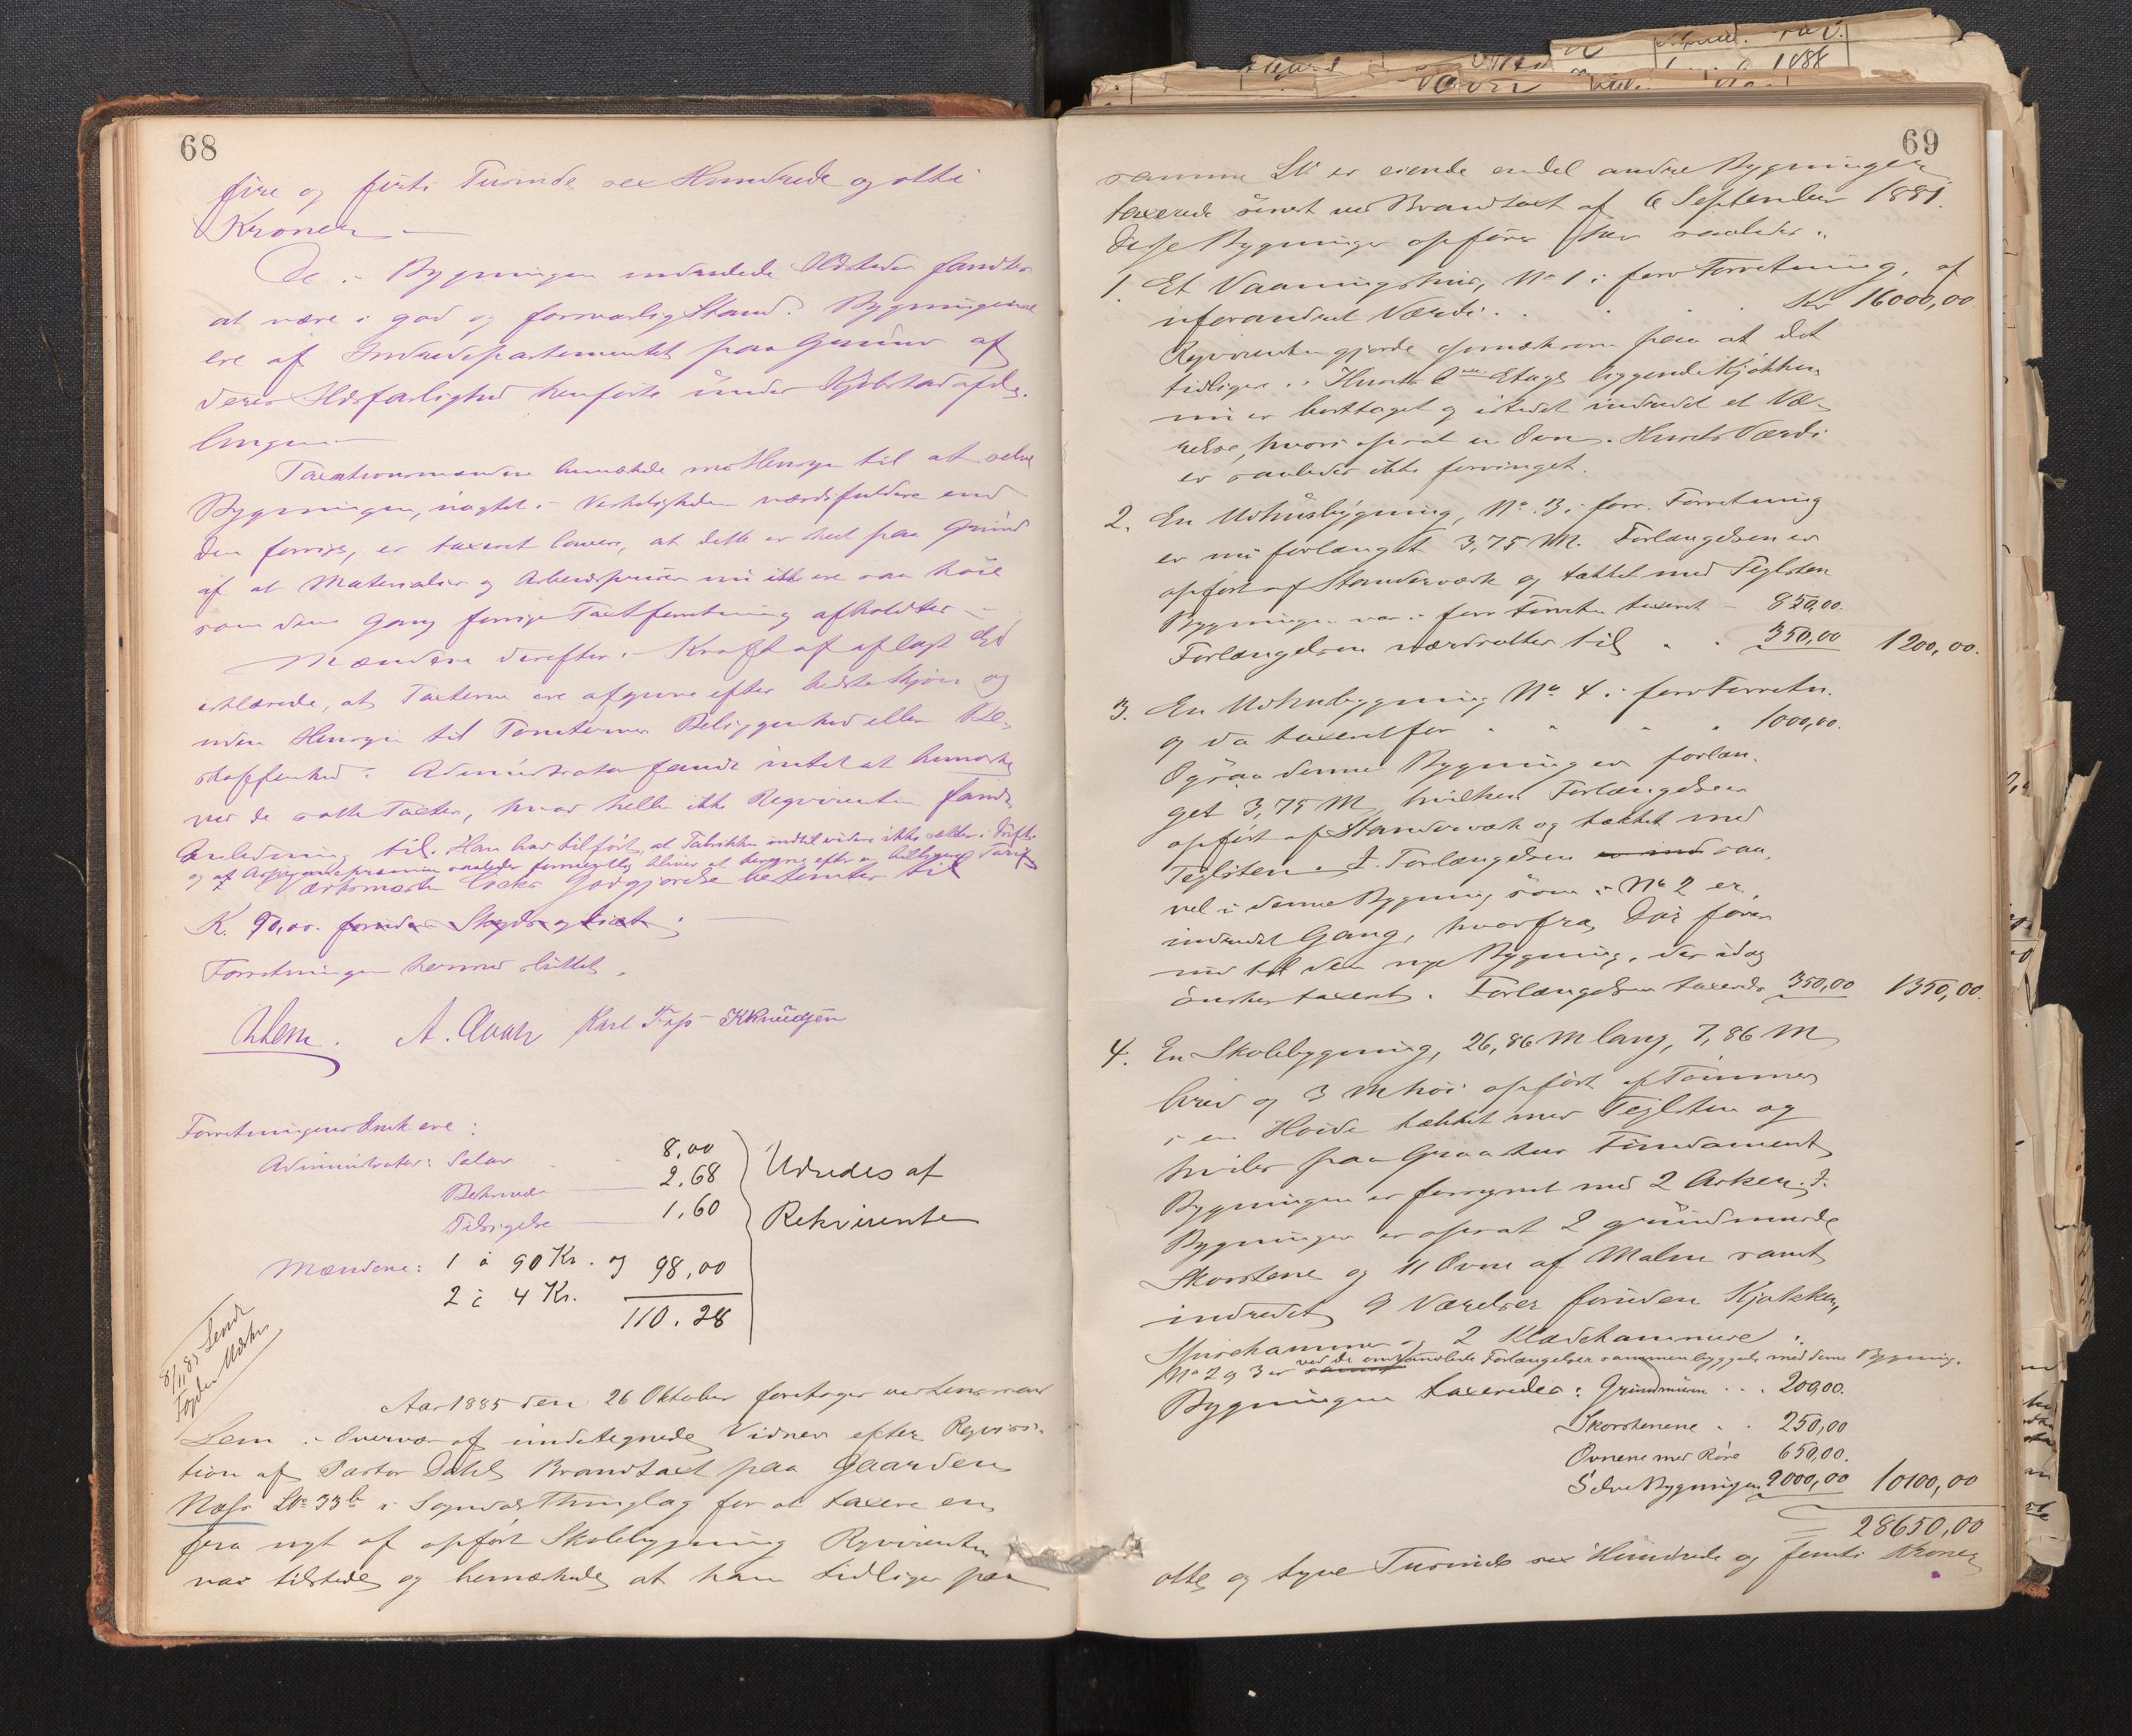 68
fire og firti Tusinde sex Hundrede og otti
Kroner —
De i Bygningen indredede Ildsteder fandtes
at være i god og forsvarlig Stand. Bygningerne
ere af Indredepartementet paa Grund af
deres Ildsfarlighed henførte under Kjøbstadafde-
lingen —
Taxationsmændene bemærkede med Hensyn til at selve
Bygningen, uagtet i Virkeligheden værdifuldere end
den forrige, er taxeret lavere, at dette er skeet paa Grund
af at Materialier og Arbeidspriser nu ikke ere saa høie
som dengang forrige Taxtforretning afholdtes —
Mændene derefter i Kraft af aflagt Ed
erklærede, at Taxterne ere afgivne efter bedste Skjøn og
uden Hensyn til Tomternes Beliggenhed eller Be-
skaffenhed. Administrator fandt intet at bemærke
ved de satte Taxter, hvad heller ikke Reqvirenten fandt
Anledning til. Han har tilført, at Fabrikken indtil videre ikke sættes i Drift
og at Assurancepræmien saaledes formentlig bliver at beregne efter en billigere Tarif
Godtgjørelse bestemtes til
K. 90,00. foruden Skyds og Diæt.
Forretningen hermed sluttet.
Lem. A. Karl KKnudsen
Forretningens Omk. ere:
Administrator: Salær 8,00
2,68
Tilsigelse 1,60
Mændene: 1 à 90 Kr. og 98,00
2 à 4 Kr.
110.28
Udredes af
Rekvirenten
8/11 85 Sendt
Fogden Udskr.
Aar 1885 den 26 Oktober foretoges ved Lensmand
Lem i Overvær af undertegnede Vidner efter Reqvisi-
tion af Pastor Dahl Brandtaxt paa Gaarden
Næss LNo 33b i Sogndals Thinglag for at taxere en
fra nyt af opført Skolebygning. Reqvirenten
var tilstede og bemærkede at han tidligere paa
69
samme LNo er eiende endel andre Bygninger
taxerede senest ved Brandtaxt af 6 September 1881.
Disse Bygninger opføres her saaledes:
1. Et Vaaningshus, No 1 i forr Forretning, af
uforandret Værdi . . . . Kr 16000,00
Reqvirenten gjorde opmærksom paa at det
tidligere i Husets Etage liggende Kjøkken
nu er borttaget og istedet indredet et Væ-
relse, hvori opsat en Ovn. Husets Værdi
er saaledes ikke forringet.
2. En Udhusbygning, No. 3 i forr. Forretning
er nu forlænget 3,75 M. Forlængelsen er
opført af Standerværk og tækket med Teglsten
Bygningen var i forr Forretn taxeret - 850,00.
Forlængelsen værdsattes til . . 350,00 1200,00.
3. En Udhusbygning No 4 i forr Forretn.
og da taxeret for . . . . 1000,00.
Ogsaa denne Bygning er forlæn-
get 3,75 M, hvilken Forlængelse er
opført af Standerværk og tækket med
Teglsten. I Forlængelsen saa-
vel i denne Bygning som i No 2 er
indredet Gang, hvorfra Dør fører
ind til den nye Bygning, der idag
ønskes taxeret. Forlængelsen taxeredes 350,00 1350,00.
4. En Skolebygning, 26,86 M lang, 7,86 M
bred og 3 M høi opført af Tømmer
i en Høide tækket med Teglsten og
hviler paa Graastens Fundament
Bygningen er forsynet med 2 Arker. I
Bygningen er opsat 2 grundmurede
Skorstene og 11 Ovne af Malm samt
indredet 9 Værelser foruden Kjøkken,
Spisekammer og 2 Klædekammere.
No 2 og 3 er ved de omhandlede Forlængelser sammenbyggede med denne Bygning.
Bygningen taxeredes: Grundmuren . . . 200,00.
Skorstenene . . 250,00
Ovnene med Rør 650,00.
Selve Bygningen 9000,00 10100,00
28650,00
otte og tyve Tusinde sex Hundrede og femti Kroner